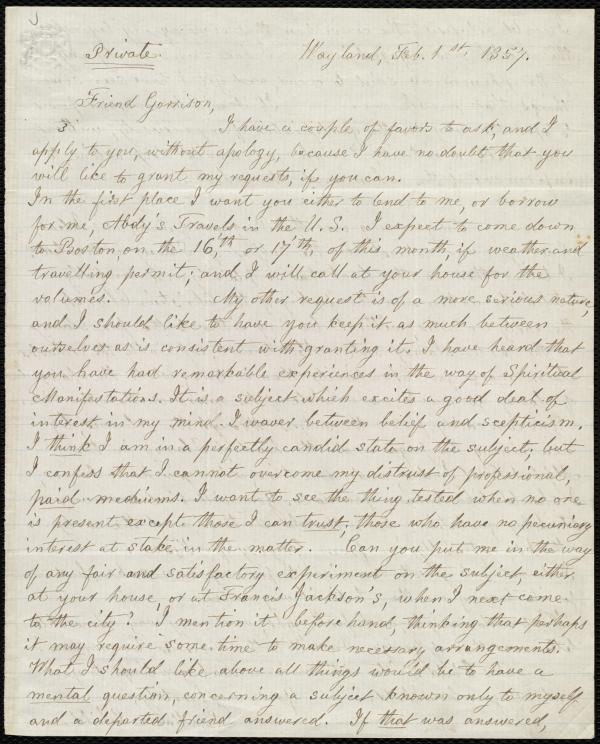 Private. Wayland, Feb. 1st, 1857.
Friend Garrison,
I have a couple of favors to ask, and I
apply to you, without apology, because I have no doubt that you
will like to grant my requests, if you can.
In the first place I want you either to lend to me, or borrow
for me, Abdy's Travels in the U.S. I expect to come down
to Boston, on the 16,th or 17th, of this month, if weather and
travelling permit; and I will call at your house for the
volumes. My other request is of a more serious nature,
and I should like to have you keep it as much between
ourselves as is consistent with granting it. I have heard that
you have had remarkable experiences in the way of Spiritual
Manifestations. It is a subject which excites a good deal of
interest in my mind. I waver between belief and scepticism.
I think I am in a perfectly candid state on the subject, but
I confess that I cannot overcome my distrust of professional,
paid mediums. I want to see the thing tested when no one
is present except those I can trust; those who have no pecuniary
interest at stake in the matter. Can you put me in the way
of any fair and satisfactory experiment on the subject, either
at your house, or at Francis Jackson's, when I next come
to the city? I mention it before hand, thinking that perhaps
it may require some time to make necessary arrangements.
What I should like above all things would be to have a
mental question, concerning a subject known only to myself
and a departed friend answered. If that was answered,